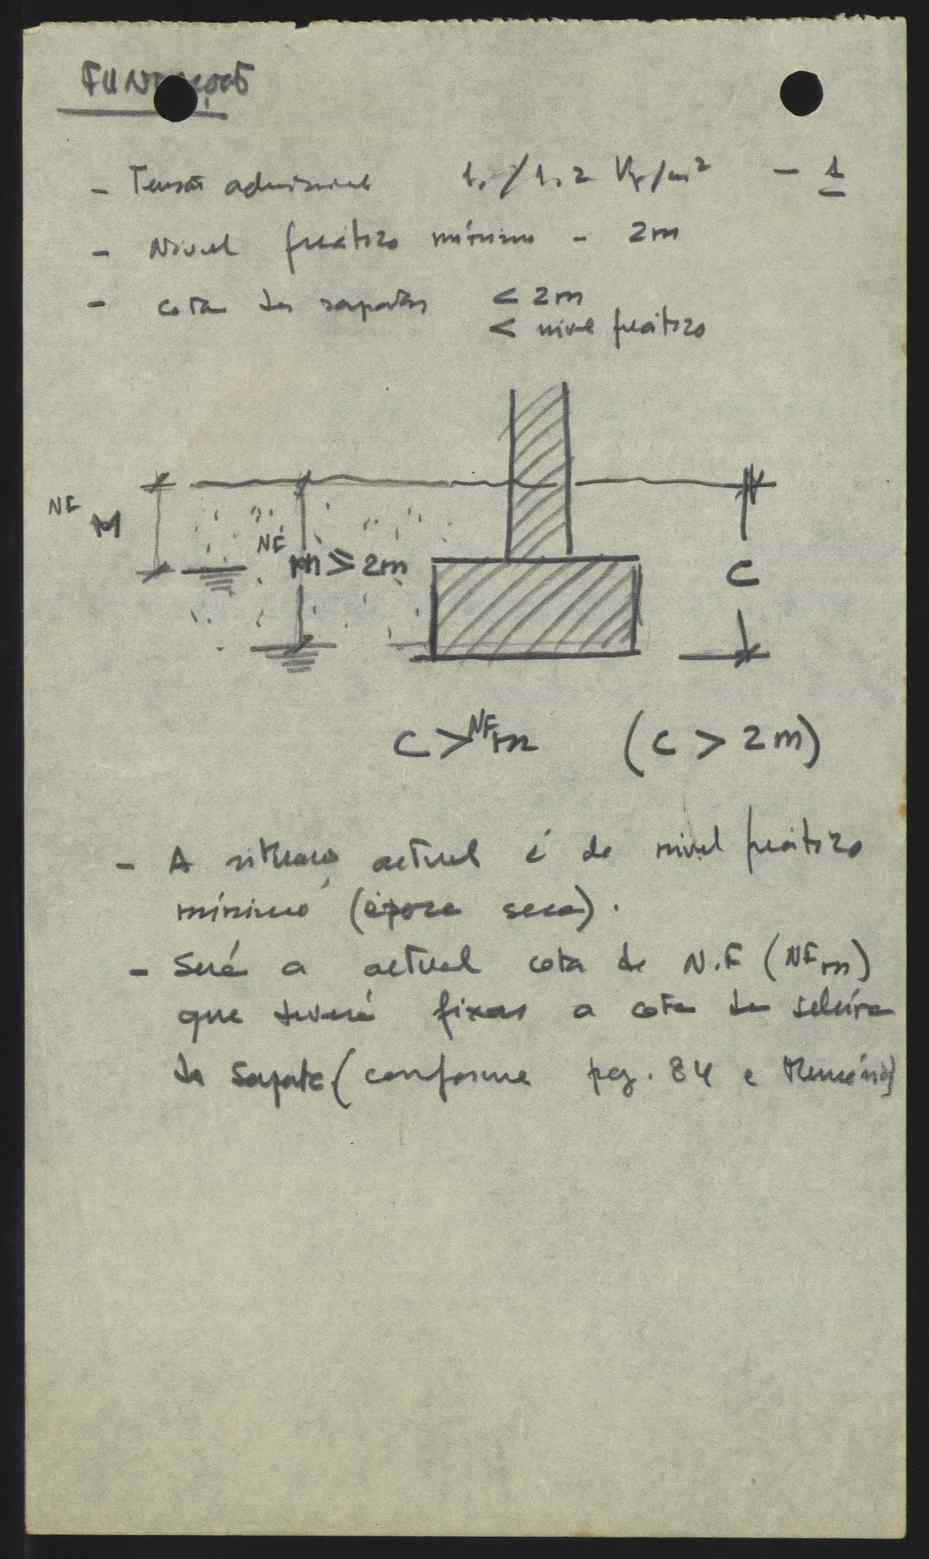 FUNDAÇÕES
- Tensão admissível 1./1.2 Kg/cm² - 1
- Nivel freático mínimo - 2m
- cota das sapatas < 2m
< nivel freático
NF M
NF m ≥ 2m
C
C > NFm (C > 2m)
- A situação actual é de nivel freático
mínimo (época seca).
- Será a actual cota de N.F (NFm)
que deverá fixar a cota da soleira
da sapata (conforme pg. 84 e Memória)